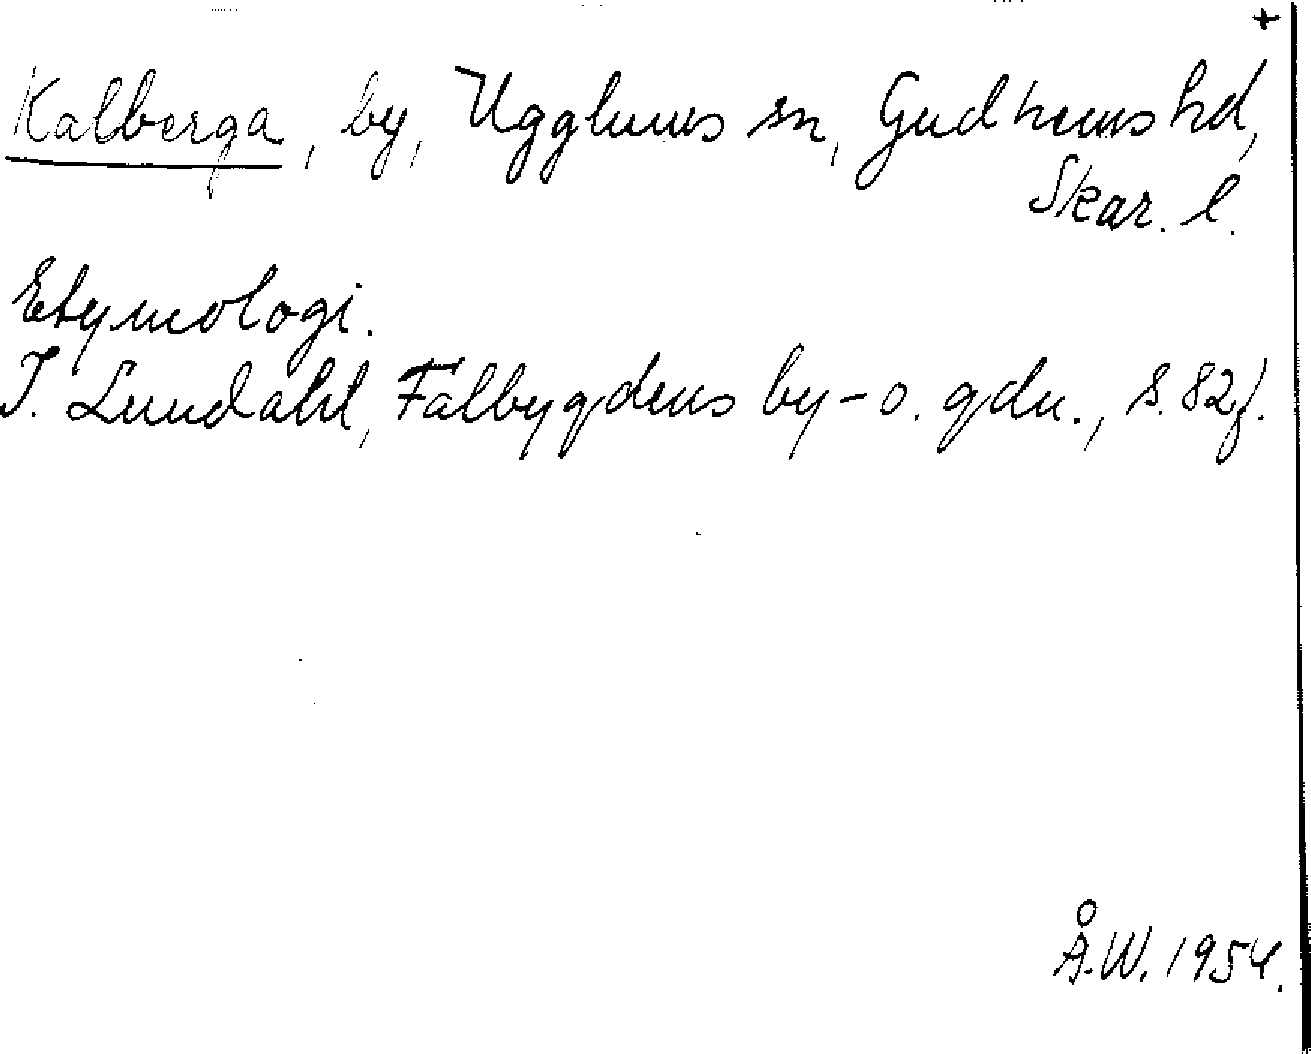 +
Kalberga, by, Ugglums sn, Gudhems hd,
Skar. l.
Etymologi.
I. Lundahl, Falbygdens by- o. gdn., s. 82f.
Å.W. 1954.